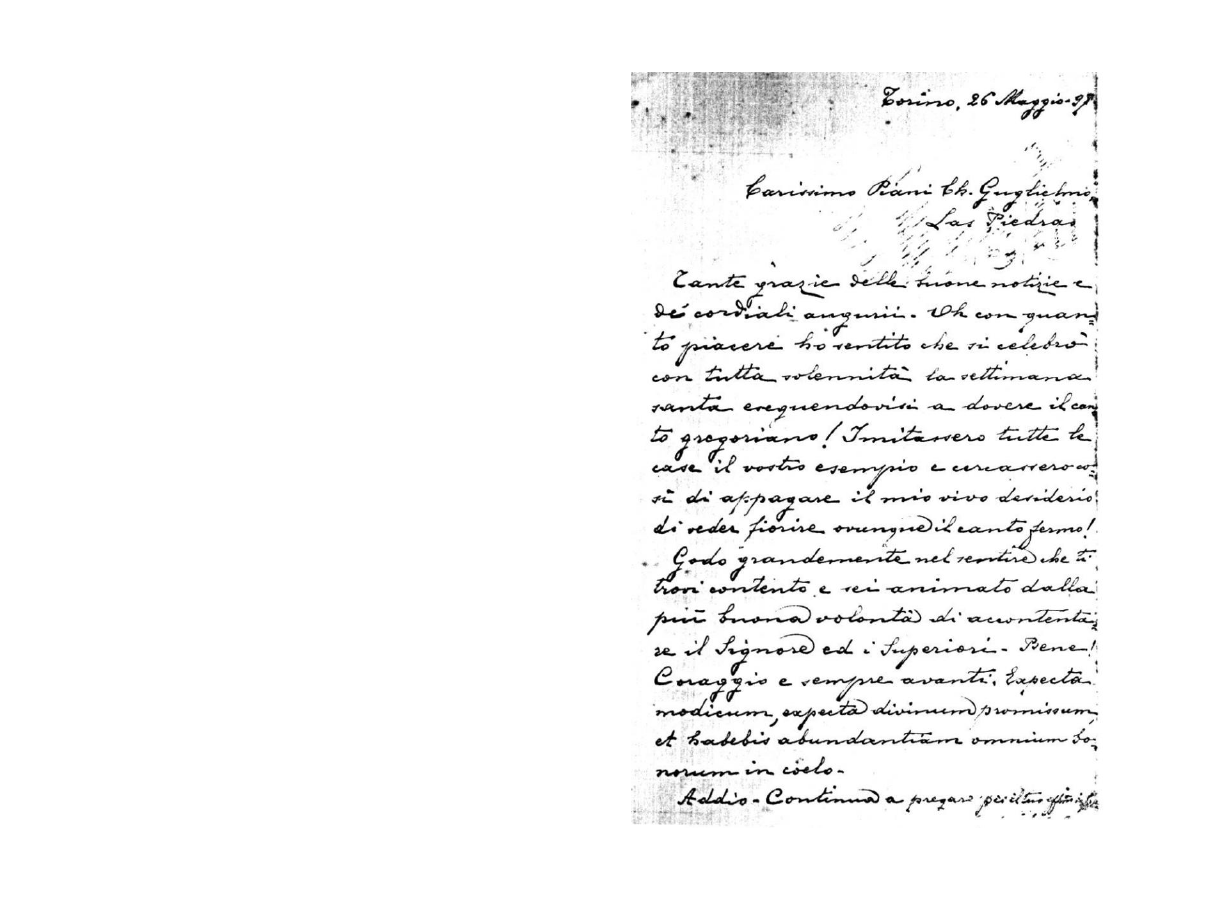 Torino, 26 Maggio-98
Carissimo Piani Ch. Guglielmo,
Las Piedras
Tante grazie delle buone notizie e
de' cordiali augurii. Oh con quan=
to piacere ho sentito che si celebrò
con tutta solennità la settimana
santa eseguendovisi a dovere il can
to gregoriano! Imitassero tutte le
case il vostro esempio e cercassero co=
sì di appagare il mio vivo desiderio
di veder fiorire ovunque il canto fermo!
Godo grandemente nel sentire che ti
trovi contento e sei animato dalla
più buona volontà di accontenta=
re il Signore ed i Superiori - Bene!
Coraggio e sempre avanti. Expecta
modicum, expecta divinum promissum,
et habebis abundantiam omnium bo=
norum in coelo -
Addio - Continua a pregare pel tuo